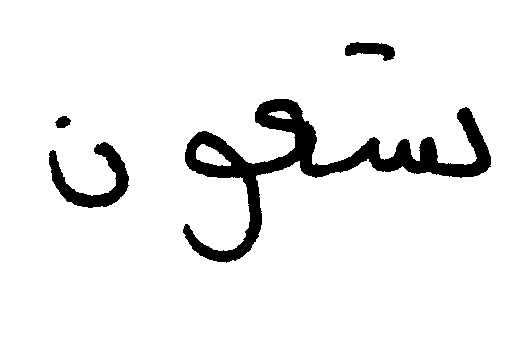 تسعون